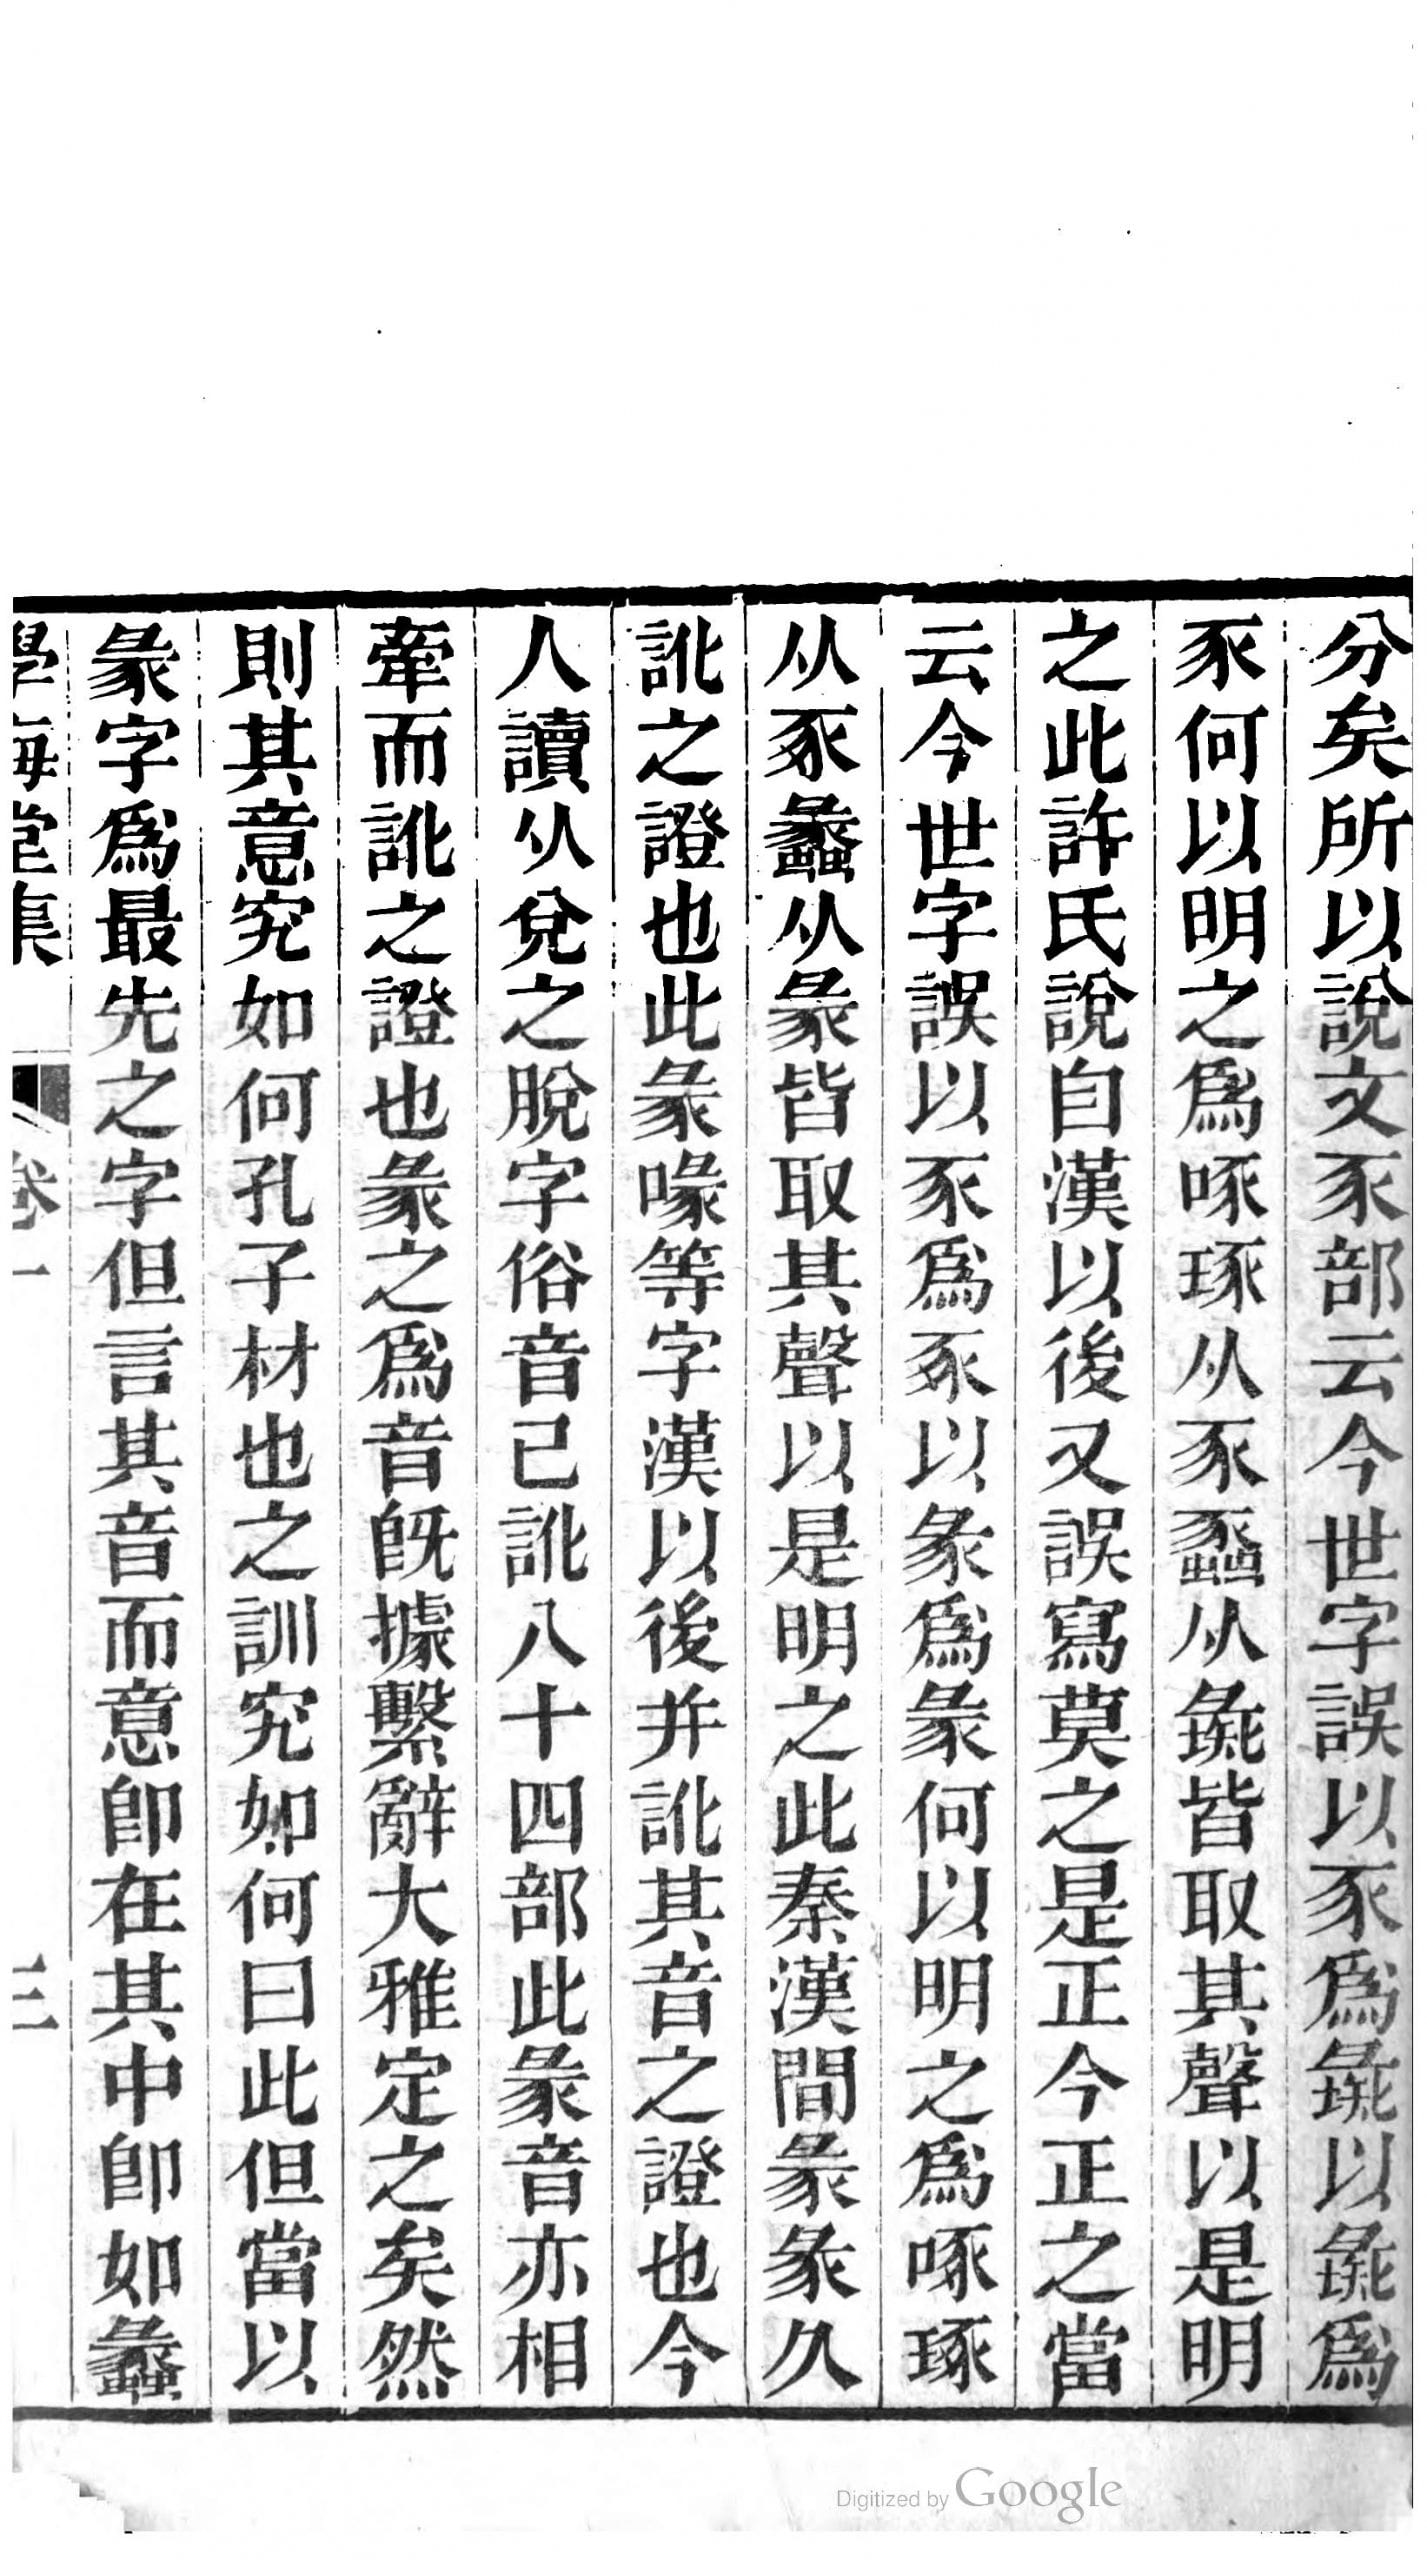 分矣所以說文豕部云今世字誤以豕爲彘以彘爲
豕何以明之爲啄琢从豕蟸从彘皆取其聲以是明
之此許氏說自漢以後又誤寫莫之是正今正之當
云今世字誤以豕爲豕以彖爲彖何以明之爲啄琢
从豕蠡从彖皆取其聲以是明之此秦漢間彖彖久
訛之證也此彖喙等字漢以後并訛其音之證也今
人讀从兌之脫字俗音已訛八十四部此彖音亦相
牽而訛之證也彖之爲音旣據繫辭大雅定之矣然
則其意究如何孔子材也之訓究如何曰此但當以
彖字爲最先之字但言其音而意卽在其中卽如蠡
學海堂集 卷一 三
Digitized by Google